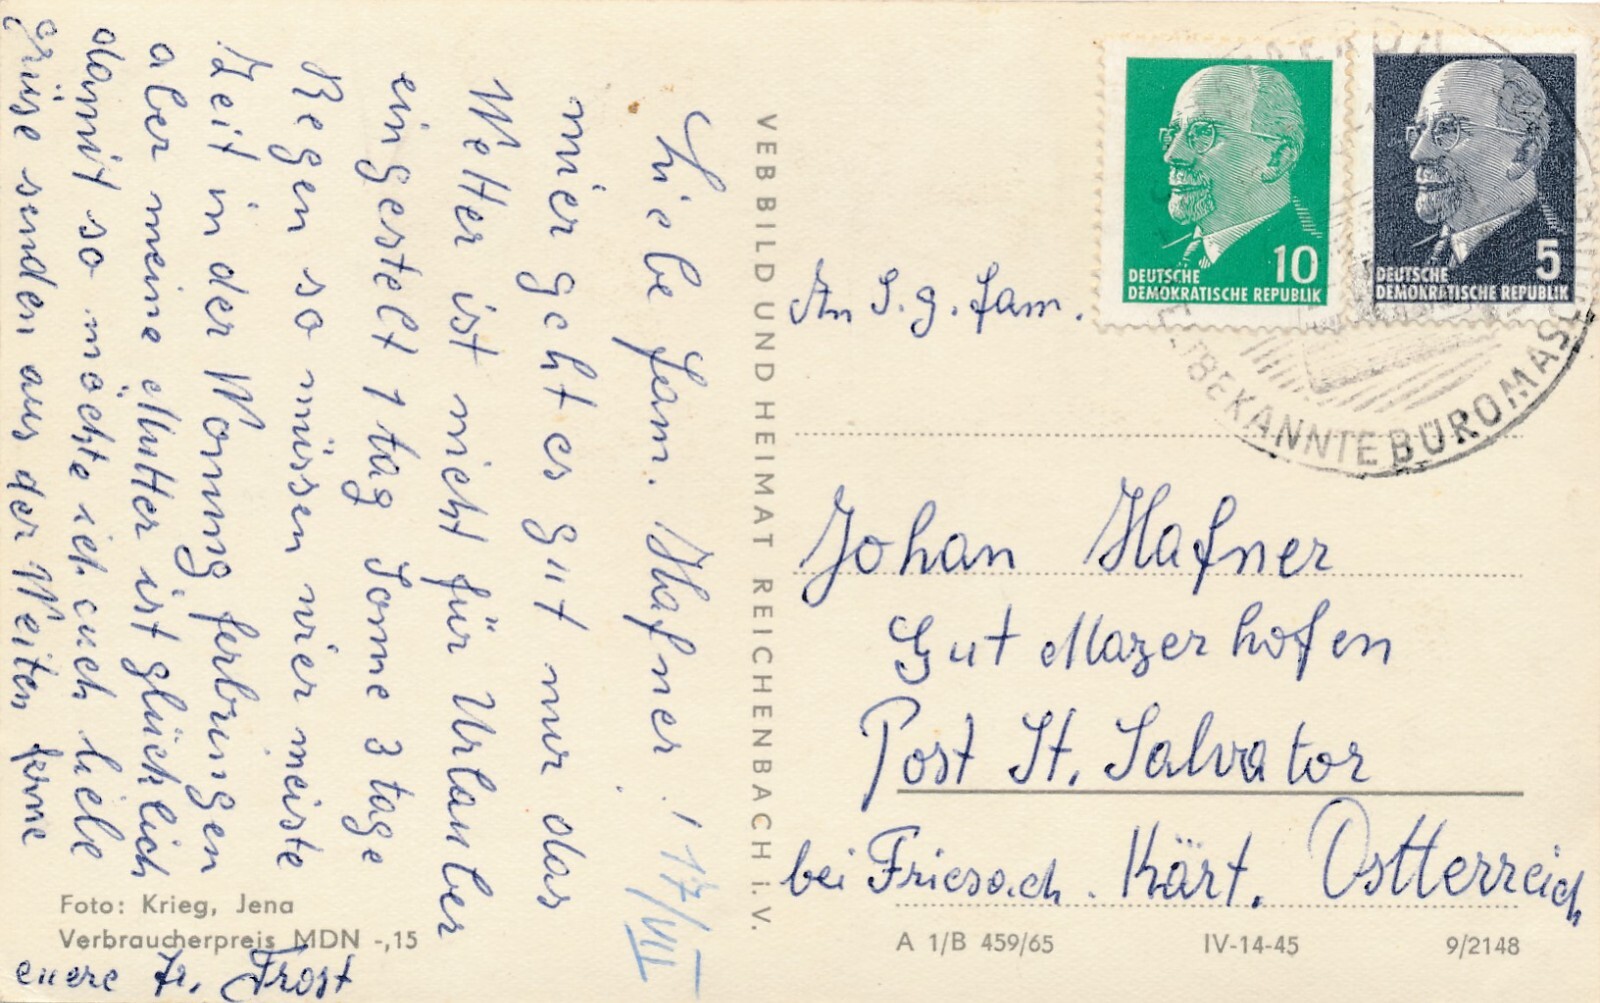 Liebe Fam. Hafner !
17/VIII
mier geht es gut nur das
Wetter ist nicht für Urlauber
eingestelt 1 tag Sonne 3 tage
Regen so müssen wier meiste
Zeit in der Wonung ferbringen
aber meine Mutter ist glücklich
damit so möchte ich euch liebe
grüse senden aus der Weiten ferne
euere Fr. Frost
Foto: Krieg, Jena
Verbraucherpreis MDN -,15
VEB BILD UND HEIMAT REICHENBACH i. V.
DEUTSCHE
DEMOKRATISCHE REPUBLIK
10
DEUTSCHE
DEMOKRATISCHE REPUBLIK
5
BEKANNTE BÜROMASCH
An S. g. Fam.
Johan Hafner
Gut Mazerhofen
Post St. Salvator
bei Friesach. Kärt. Ostterreich
A 1/B 459/65 IV-14-45 9/2148